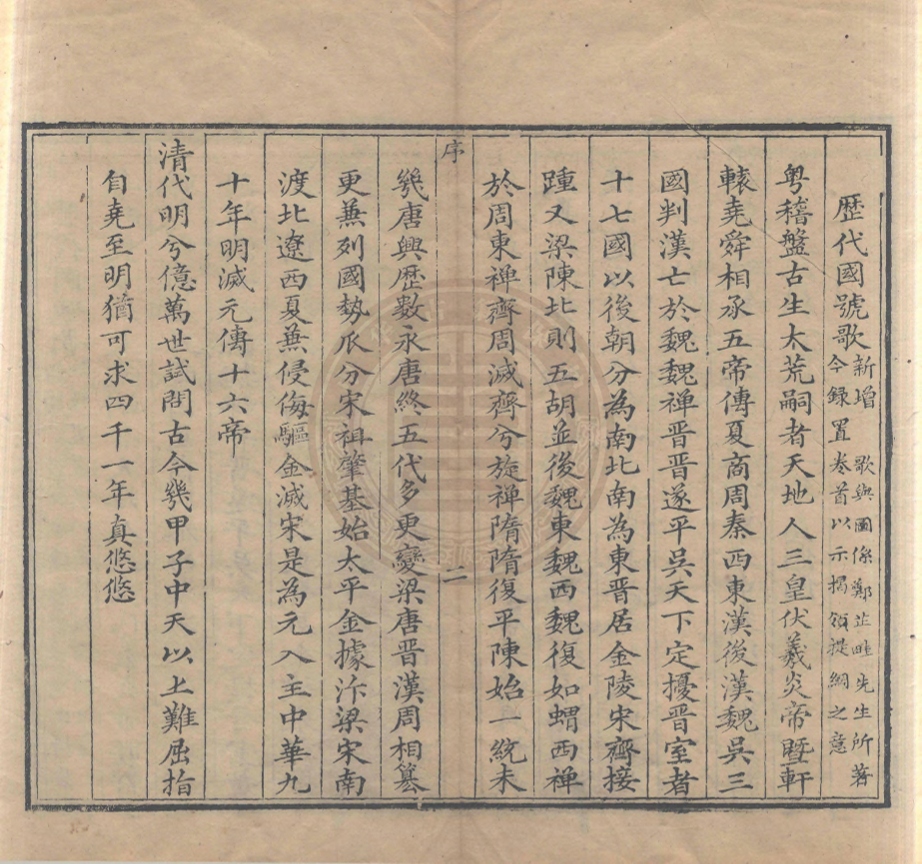 歷代國號歌新增　歌與圖係鄭芷畦先生所著
今録置卷首以示揭領提綱之意
粤稽盤古生太荒嗣者天地人三皇伏羲炎帝暨軒
轅堯舜相承五帝傳夏商周秦西東漢後漢魏吳三
國判漢亡於魏魏禪晉晉遂平吳天下定擾晉室者
十七國以後朝分為南北南為東晉居金陵宋齊接
踵又梁陳北則五胡並後魏東魏西魏復如蝟西禪
於周東禪齊周滅齊兮旋禪隋隋復平陳始一統未
序　二
幾唐興歷數永唐終五代多更變梁唐晉漢周相篡
更兼列國勢瓜分宋祖肇基始太平金據汴梁宋南
渡北遼西夏兼侵侮驅金滅宋是為元入主中華九
十年明滅元傳十六帝
清代明兮億萬世試問古今幾甲子中天以上難屈指
自堯至明猶可求四千一年真悠悠